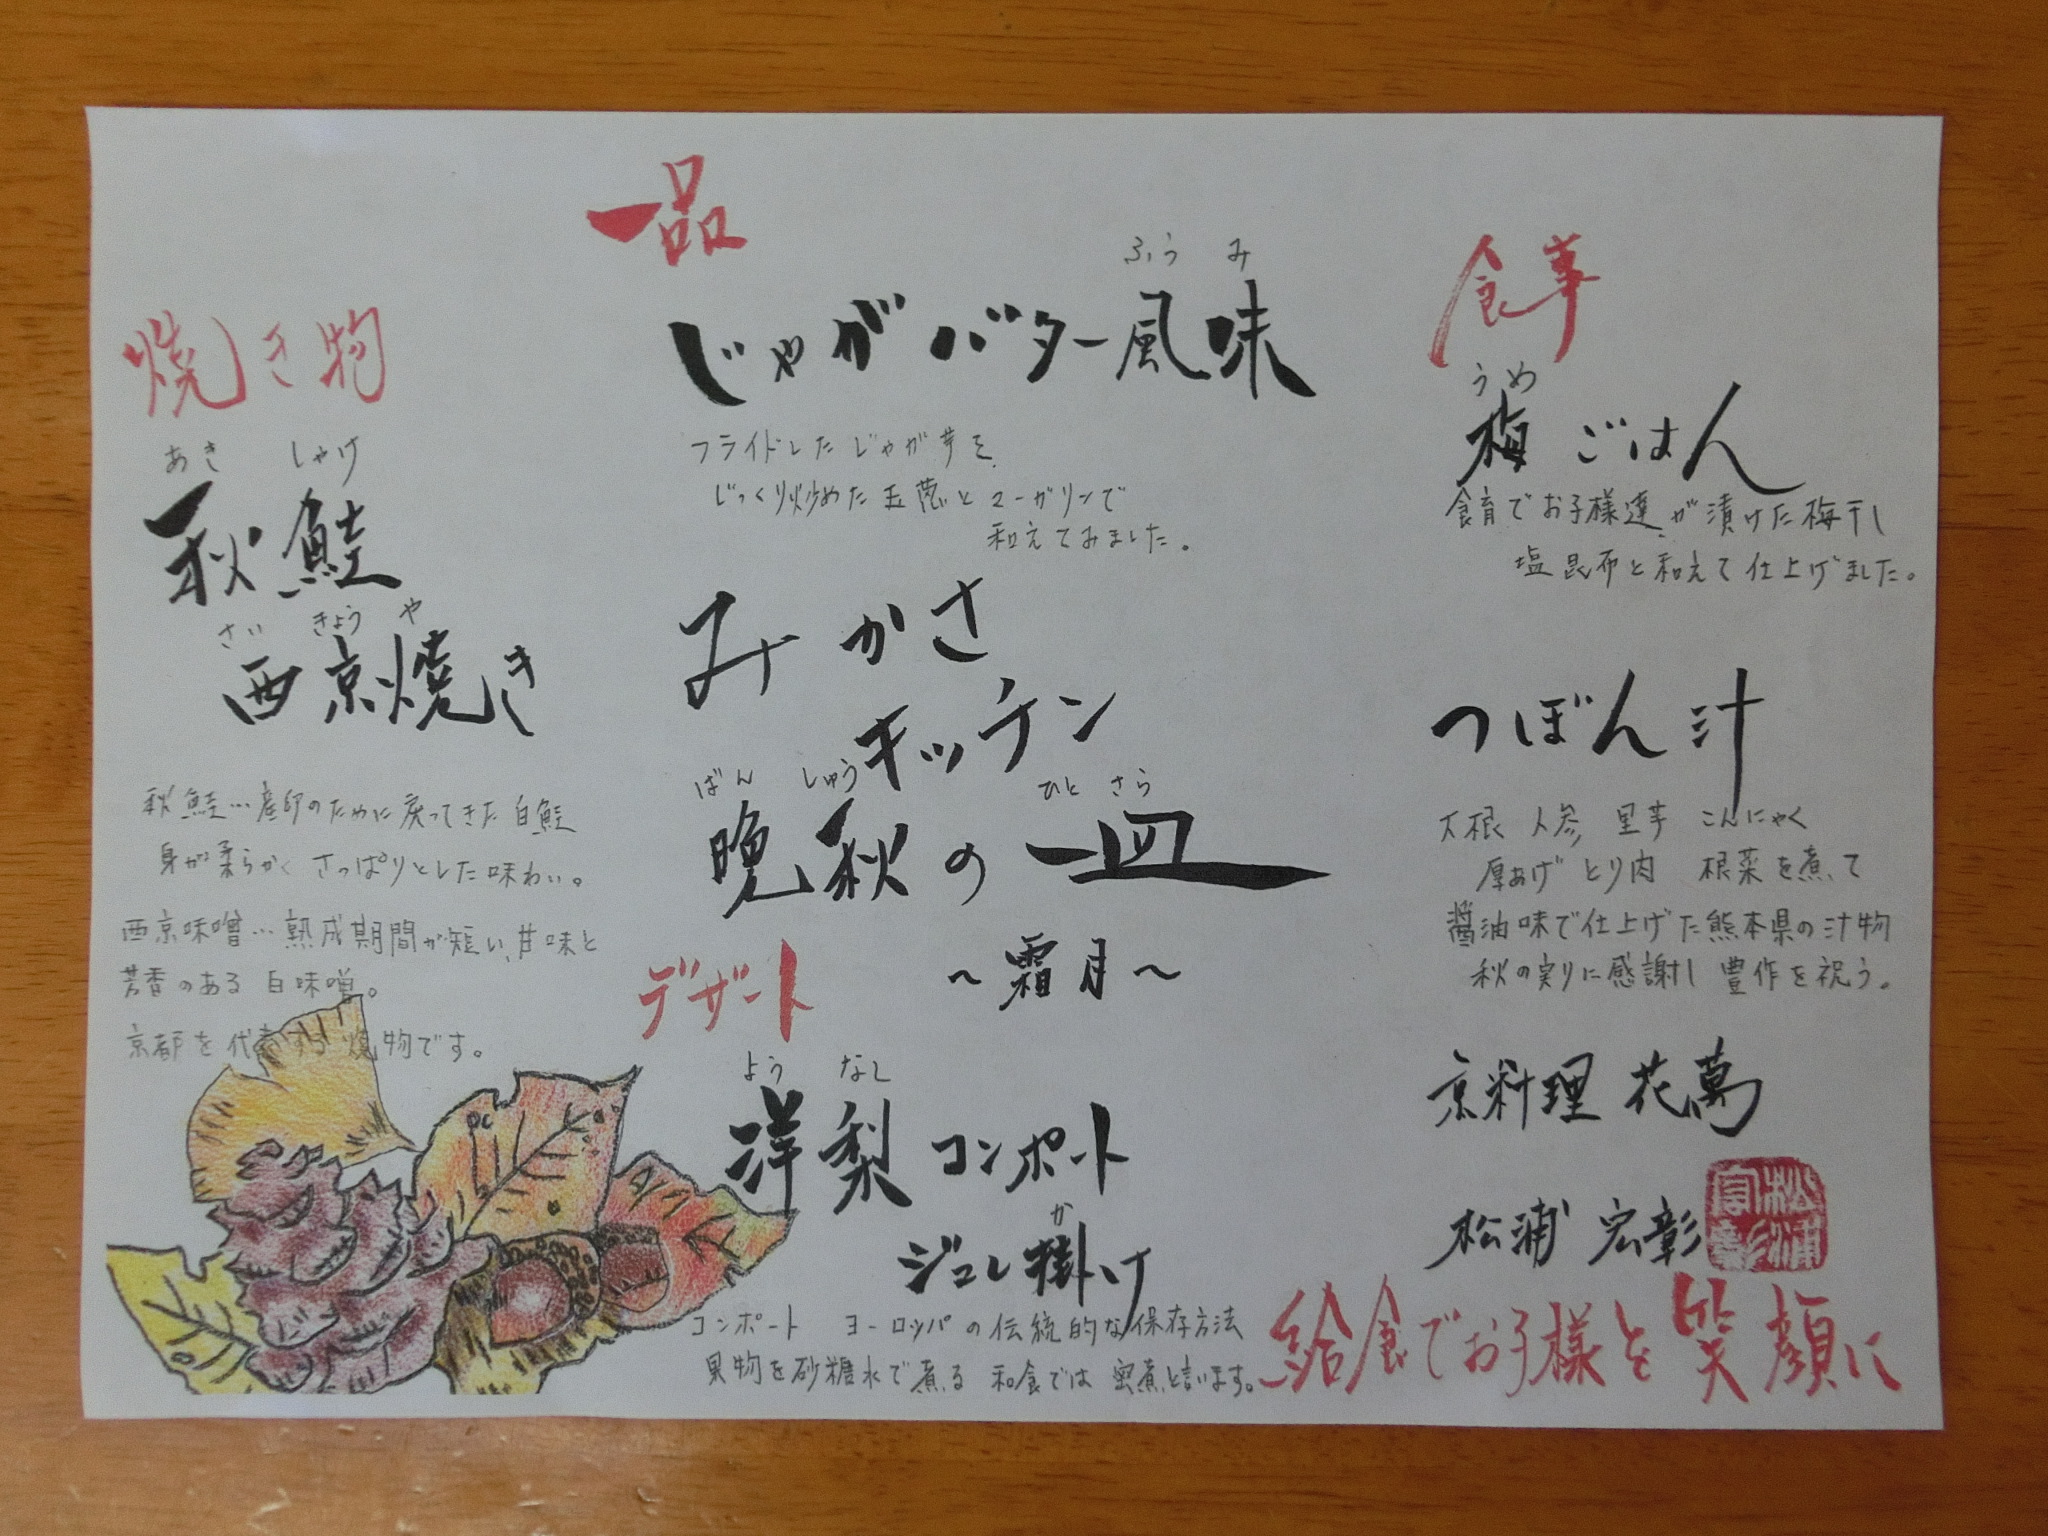 一品
ふうみ
じゃがバター風味
フライドしたじゃが芋を、
じっくり炒めた玉葱とマーガリンで
和えてみました。
食事
うめ
梅ごはん
食育でお子様達が漬けた梅干し
塩昆布と和えて仕上げました。
つぼん汁
大根 人参 里芋 こんにゃく
厚あげ とり肉 根菜を煮て
醤油味で仕上げた熊本県の汁物
秋の実りに感謝し豊作を祝う。
焼き物
あき しゃけ
秋鮭
さい きょう や
西京焼き
秋鮭…産卵のために戻ってきた白鮭
身が柔らかくさっぱりとした味わい。
西京味噌…熟成期間が短い、甘味と
芳香のある白味噌。
京都を代表する焼物です。
みかさ
キッチン
ばん しゅう ひと さら
晩秋の一皿
～霜月～
デザート
よう なし
洋梨コンポート
か
ジュレ掛け
コンポート ヨーロッパの伝統的な保存方法
果物を砂糖水で煮る 和食では蜜煮と言います。
京料理 花萬
松浦 宏彰
松浦宏彰
給食でお子様を笑顔に